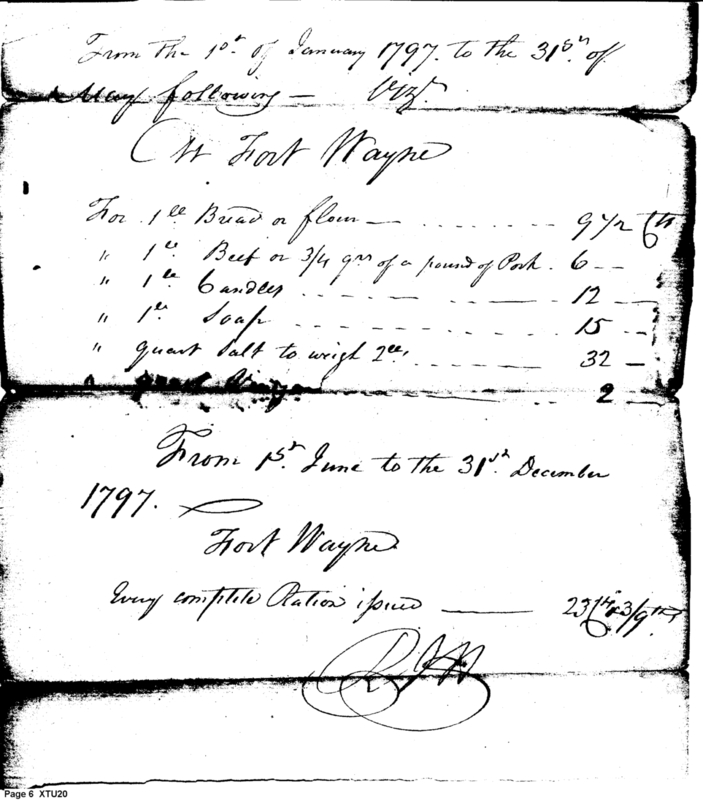 From the 1st of January 1797. to the 31st of
May following — Vizt.
At Fort Wayne
For 1 lb Bread or flour — 9 1/2 Cts
" 1 lb Beef or 3/4 qrs of a pound of Pork . 6 —
" 1 lb Candles 12 —
" 1 lb Soap 15 —
" quart Salt to weigh 2 lbs 32 —
" quart 2
From 1st. June to the 31st. December
1797.
Fort Wayne
Every complete Ration issued — 23 Cts 3/9ths
Page 6 XTU20